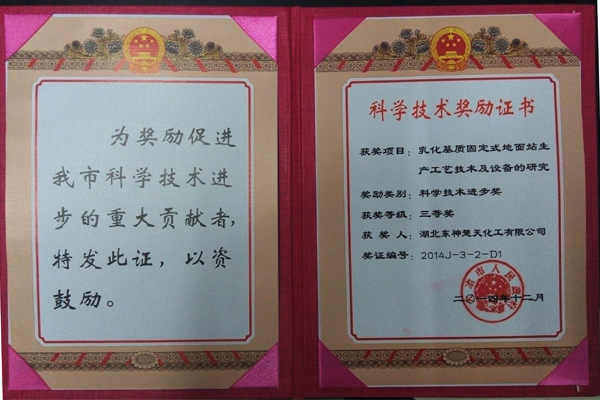 为奖励促进
我市科学技术进
步的重大贡献者，
特发此证，以资
鼓励。
科学技术奖励证书
获奖项目：乳化基质固定式地面站生
产工艺技术及设备的研究
奖励类别：科学技术进步奖
获奖等级：三等奖
获 奖 人：湖北东神楚天化工有限公司
奖证编号：2014J-3-2-D1
冶市人民政府
二〇一四年十二月